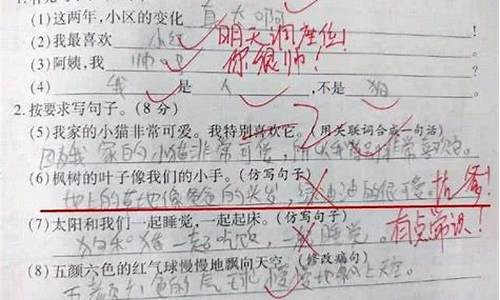 (1)这两年,小区的变化 真大啊
(2)我最喜欢 小红 明天调座位!
(3)阿姨,我 帅吗 你很帅!
(4) 我 是 人 ,不是 狗
2.按要求写句子。(8分)
(5)我家的小猫非常可爱。我特别喜欢它。(用关联词合成一句话)
因为我家的小猫非常可爱,所以我非常喜欢它。
(6)枫树的叶子像我们的小手。(仿写句子)
地上的草地像爸爸的头发,绿油油的很可爱。
(7)太阳和我们一起睡觉,一起起床。(仿写句子)
狗和猪一起吃饭,一起睡觉。 有点常识!
(8)五颜六色的红气球慢慢地飘向天空。(修改病句)
五颜六色的气球慢慢地飘上天空。